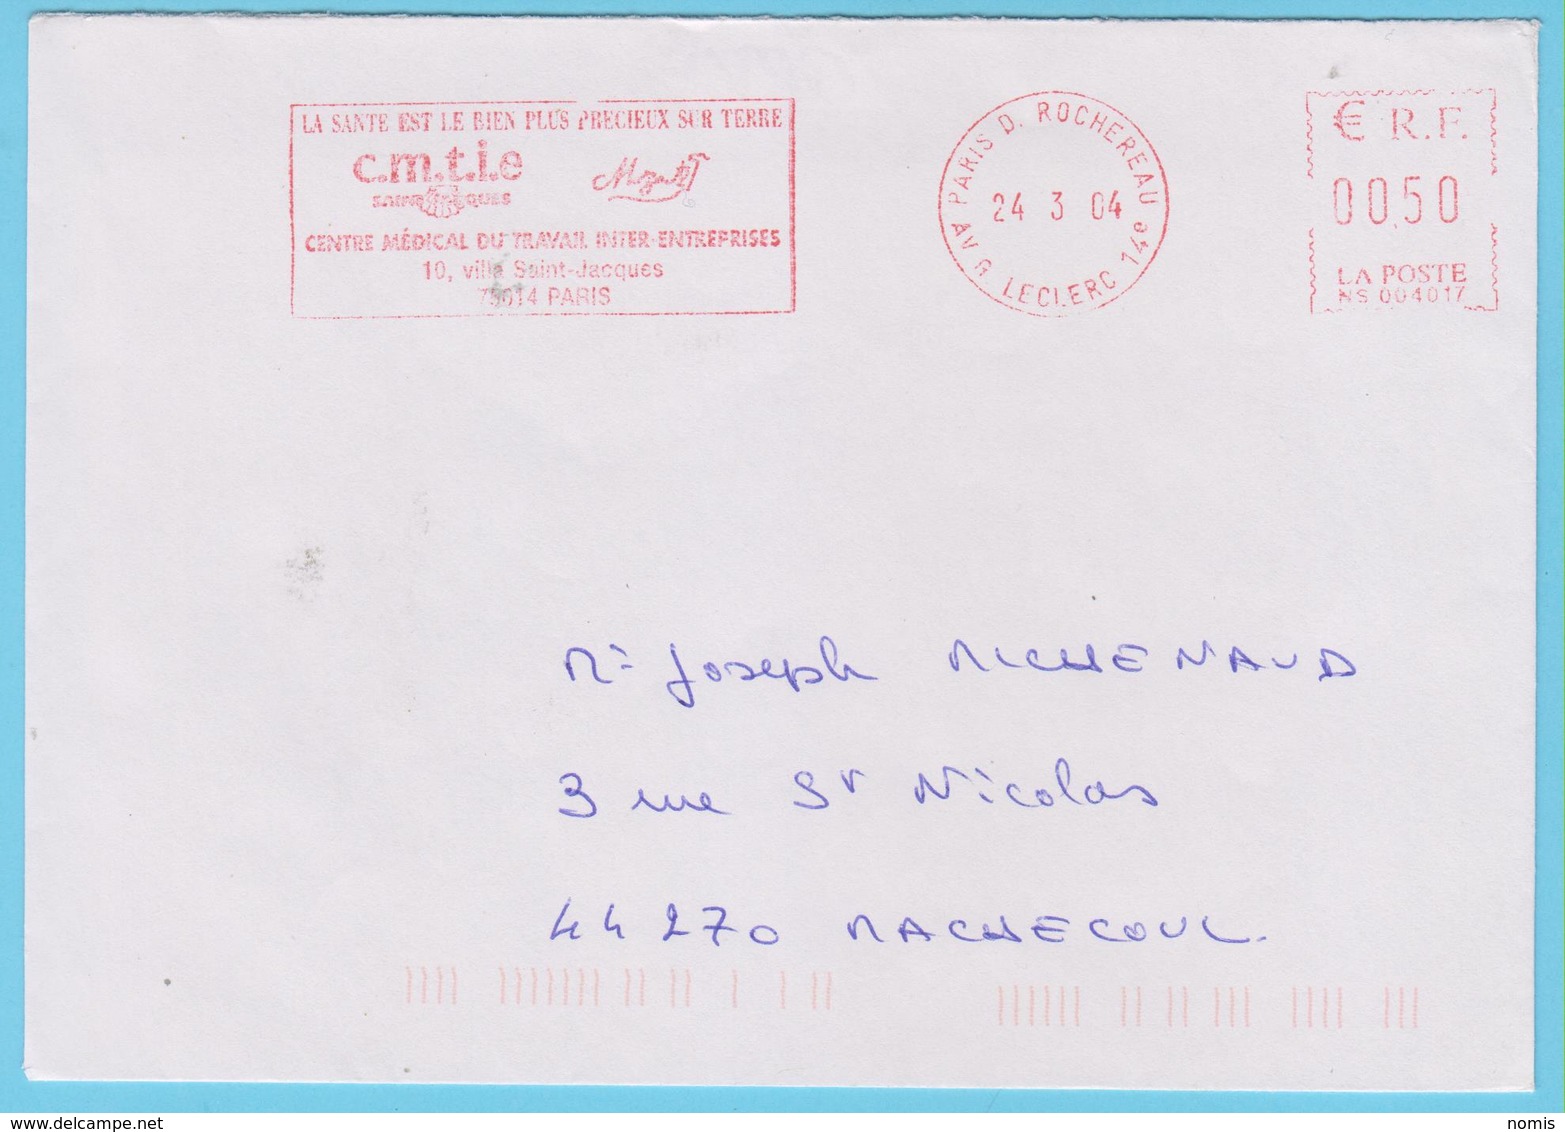 LA SANTE EST LE BIEN PLUS PRECIEUX SUR TERRE
c.m.t.i.e
Mozart
SAINT JACQUES
CENTRE MÉDICAL DU TRAVAIL INTER-ENTREPRISES
10, villa Saint-Jacques
75014 PARIS
PARIS D. ROCHEREAU
24 3 04
AV G LECLERC 14e
€ R.F.
00,50
LA POSTE
NS 004017
Mr Joseph MICHENAUD
3 rue St Nicolas
44270 MACHECOUL.
www.delcampe.net
nomis